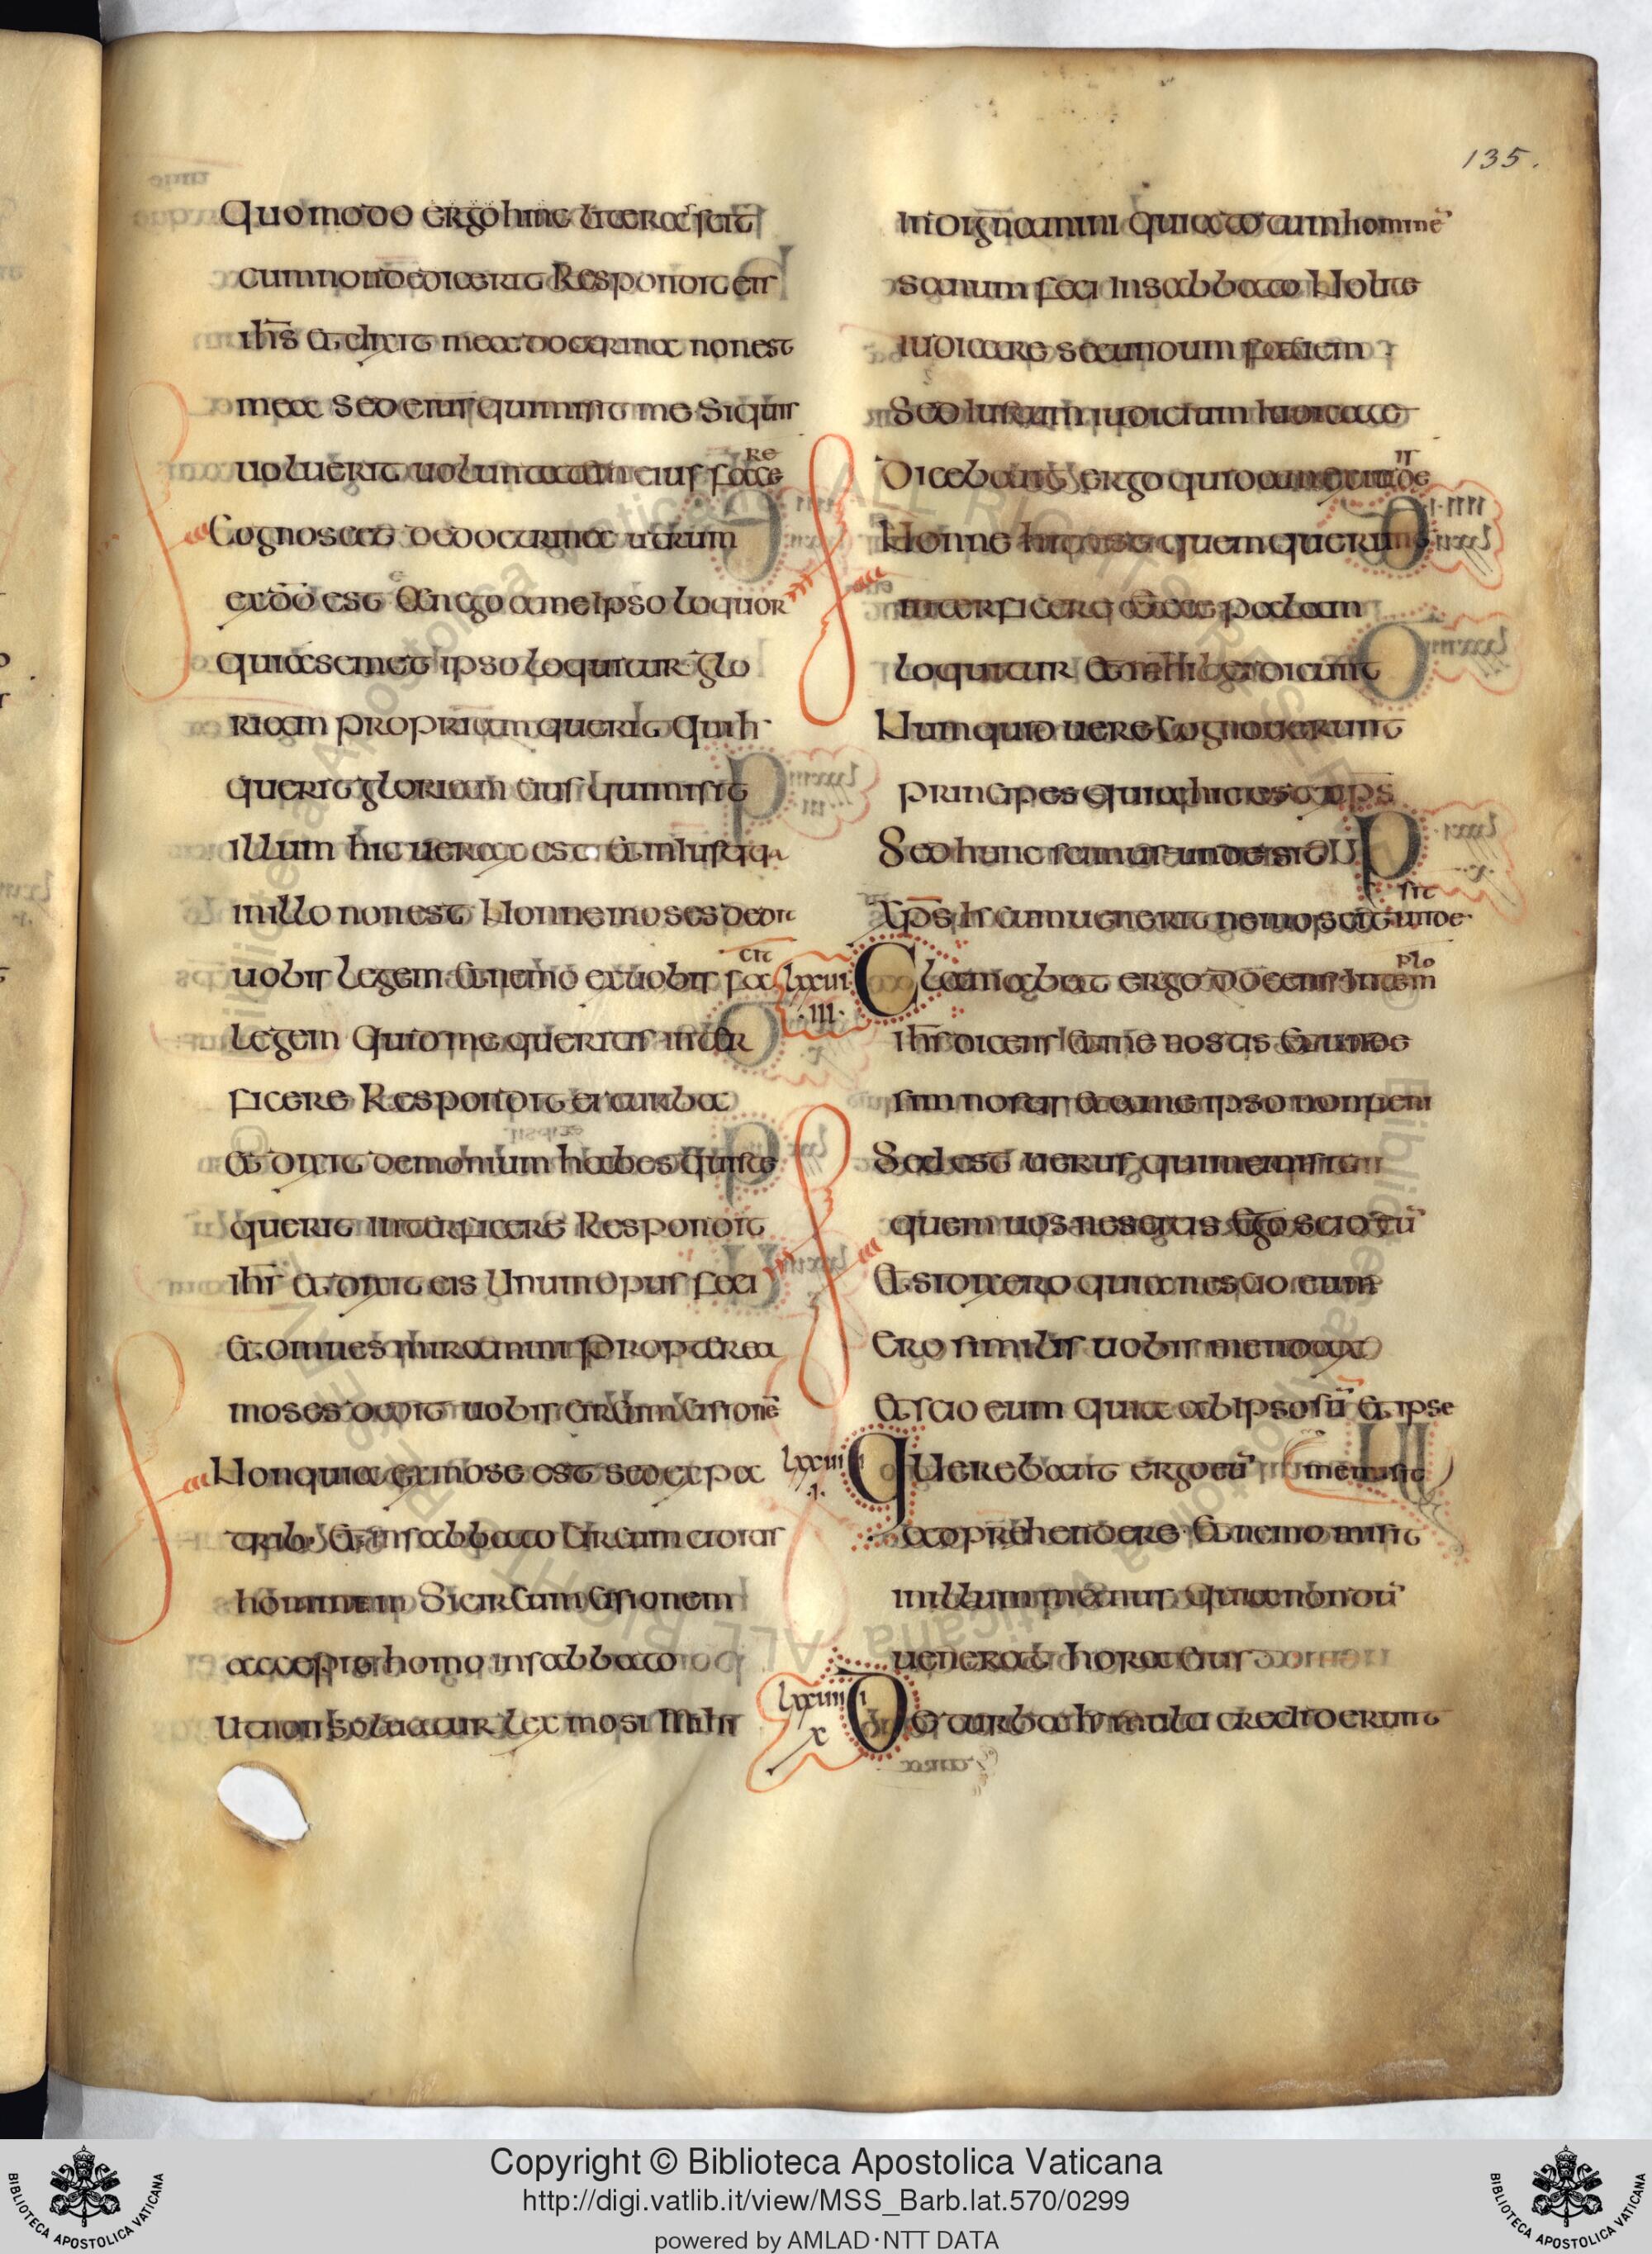 135.
Quomodo ergo hinc litteras scit
cum non dedicerit Respondit eis
ihs̄ et dixit mea doctrina non est
mea sed eius qui misit me Siquis
re
uoluerit uoluntatem eius face
Cognoscet de doctrina utrum
ex dō est An ego a me ipso loquor
qui a semet ipso loquitur glo
riam propriam querit Qui h·
querit gloriam eius qui misit
illum hic uerax est et iniustitia
in illo non est Nonne moses dedit
cit
uobis legem et nemo ex uobis fa
legem Quid me queritis inter
ficere Respondit ei turba
et dixit demonium habes quis te
querit interficere Respondit
ihs et dixit eis Unum opus feci
et omnes miramini Propterea
moses dedit uobis circumcisionē
Non quia ex mose est sed ex pa
trib; et in sabbato circumciditis
hominem Si circumcisionem
accepit homo in sabbato
Ut non soluatur lex mosi Mihi
indignamini quia totum hominē
sanum feci in sabbato Nolite
iudicare secundum faciem
Sed iustum iudicium iudicate
Dicebant ergo quidam ex
Nonne hic est quem querunt
interficere Ecce palam
loquitur et nihil ei dicunt
Numquid uere cognouerunt
principes quia hic est xp̄s
Sed hunc scimus unde sit
sit
Xp̄s h cum uenerit nemo scit unde
plo
lxxiii
iii
Clamabat ergo docens in tem
ihs dicens et me nostis et unde
sim nostis et a me ipso non ueni
Sed est uerus qui me misit
quem uos nescitis Ego scio eū
Et si dixero quia nescio eum
Ero similis uobis mendax
Et scio eum quia ab ipso sū et ipse
lxxiiii
i
Querebant ergo eū me misit
adprehendere Et nemo misit
in illum manus quia nondū
uenerat hora eius
x
De turba h multi crediderunt
Copyright © Biblioteca Apostolica Vaticana
http://digi.vatlib.it/view/MSS_Barb.lat.570/0299
powered by AMLAD·NTT DATA
BIBLIOTECA APOSTOLICA VATICANA
BIBLIOTECA APOSTOLICA VATICANA